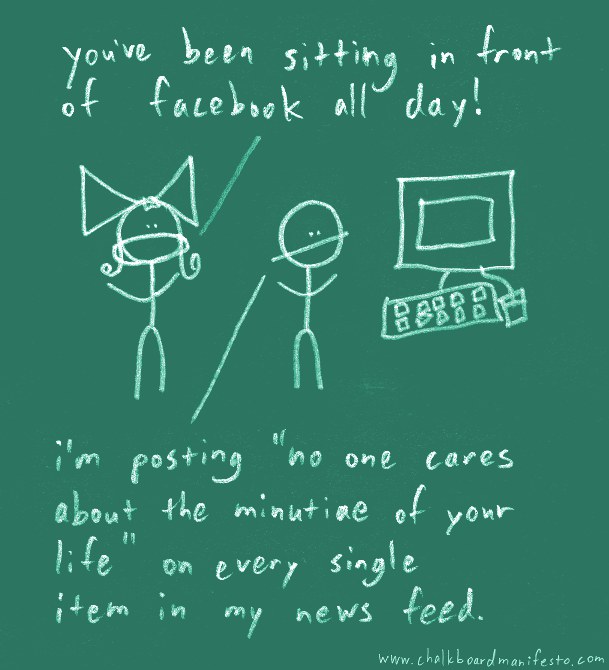 you've been sitting in front
of facebook all day!
i'm posting "no one cares
about the minutiae of your
life" on every single
item in my news feed.
www.chalkboardmanifesto.com